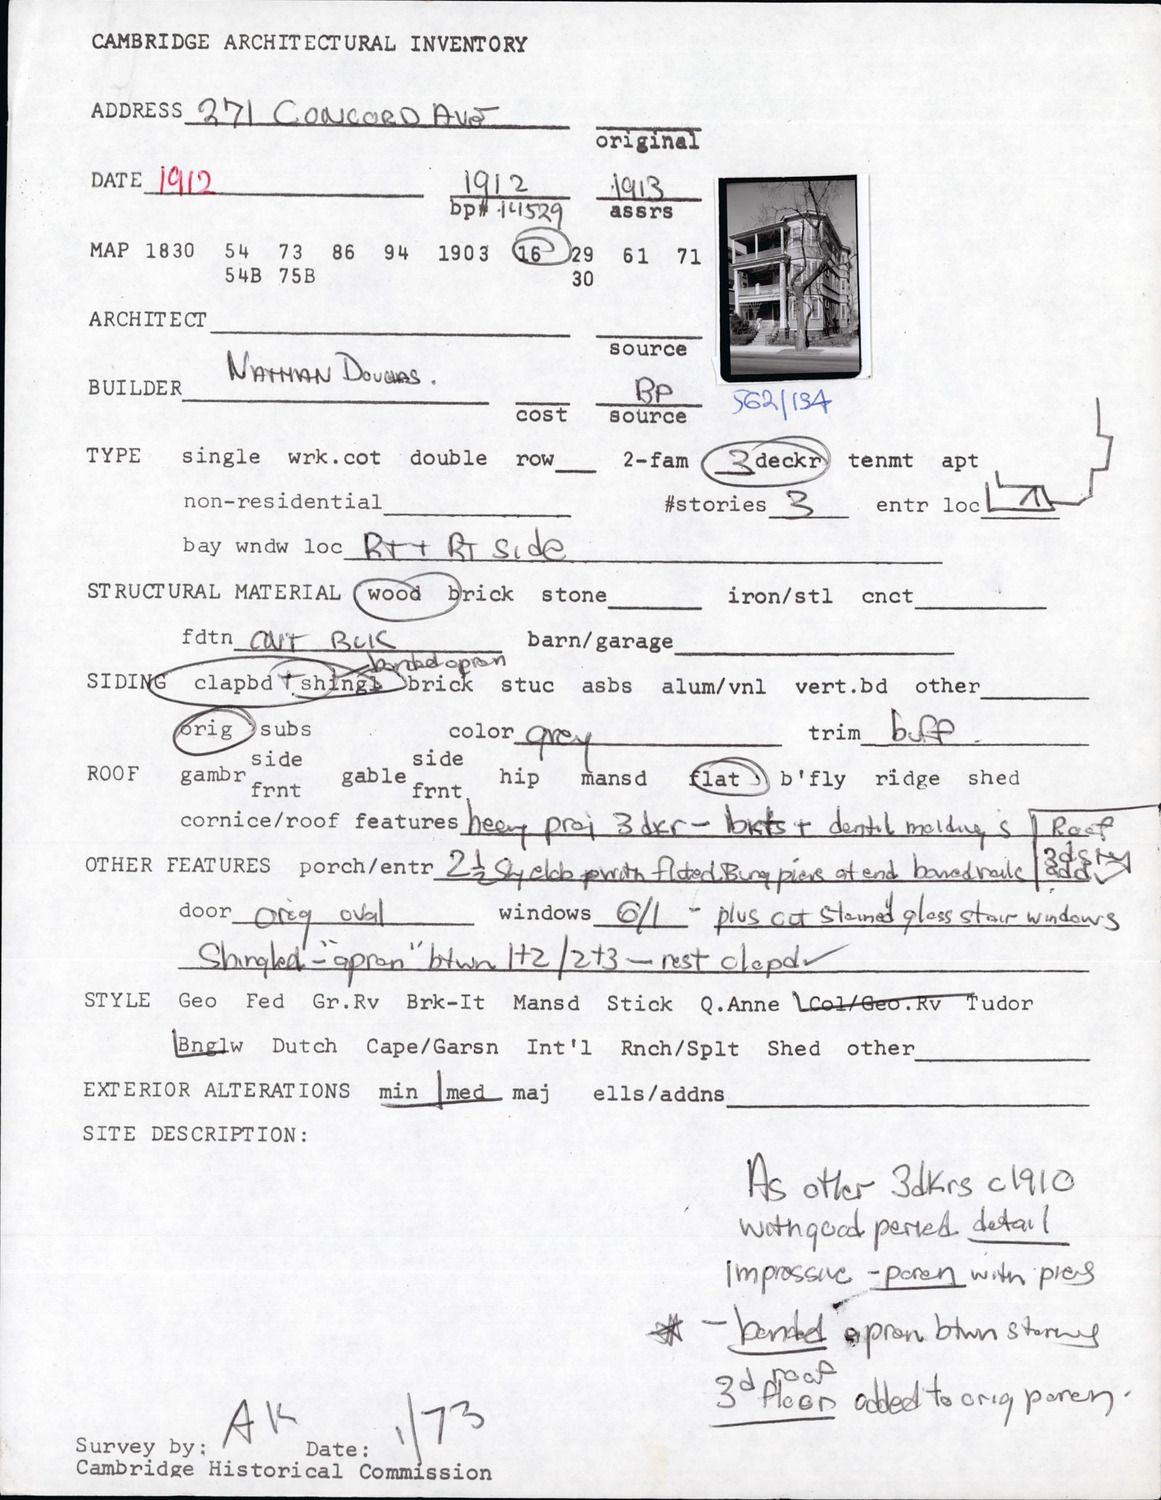 CAMBRIDGE ARCHITECTURAL INVENTORY
ADDRESS 271 CONCORD AVE
original
DATE 1912 1912 1913
bp# 14529 assrs
MAP 1830 54 73 86 94 1903 16 29 61 71
54B 75B 30
ARCHITECT
source
BUILDER NATHAN DOUGLAS. BP
cost source
562/13A
TYPE single wrk.cot double row 2-fam 3 deckr tenmt apt
non-residential #stories 3 entr loc
bay wndw loc RT + RT side
STRUCTURAL MATERIAL wood brick stone iron/stl cnct
fdtn BLK barn/garage
banded apron
SIDING clapbd + shingl brick stuc asbs alum/vnl vert.bd other
orig subs color grey trim buff.
side side
ROOF gambr gable hip mansd flat b'fly ridge shed
frnt frnt
cornice/roof features heavy proj 3dkr - bkts + dentil moldings Roof
3d sty
add
OTHER FEATURES porch/entr 2½ Sty with fluted piers at end
door orig oval windows 6/1 - plus stained glass stair windows
Shingled - "apron" btwn 1+2 / 2+3 - rest clapd
STYLE Geo Fed Gr.Rv Brk-It Mansd Stick Q.Anne Col/Geo.Rv Tudor
Bnglw Dutch Cape/Garsn Int'l Rnch/Splt Shed other
EXTERIOR ALTERATIONS min med maj ells/addns
SITE DESCRIPTION:
As other 3dkrs c1910
with good period detail
Impressive - porch with piers
* - banded apron btwn stories
roof
3d floor added to orig porch.
Survey by: AK Date: 1/73
Cambridge Historical Commission